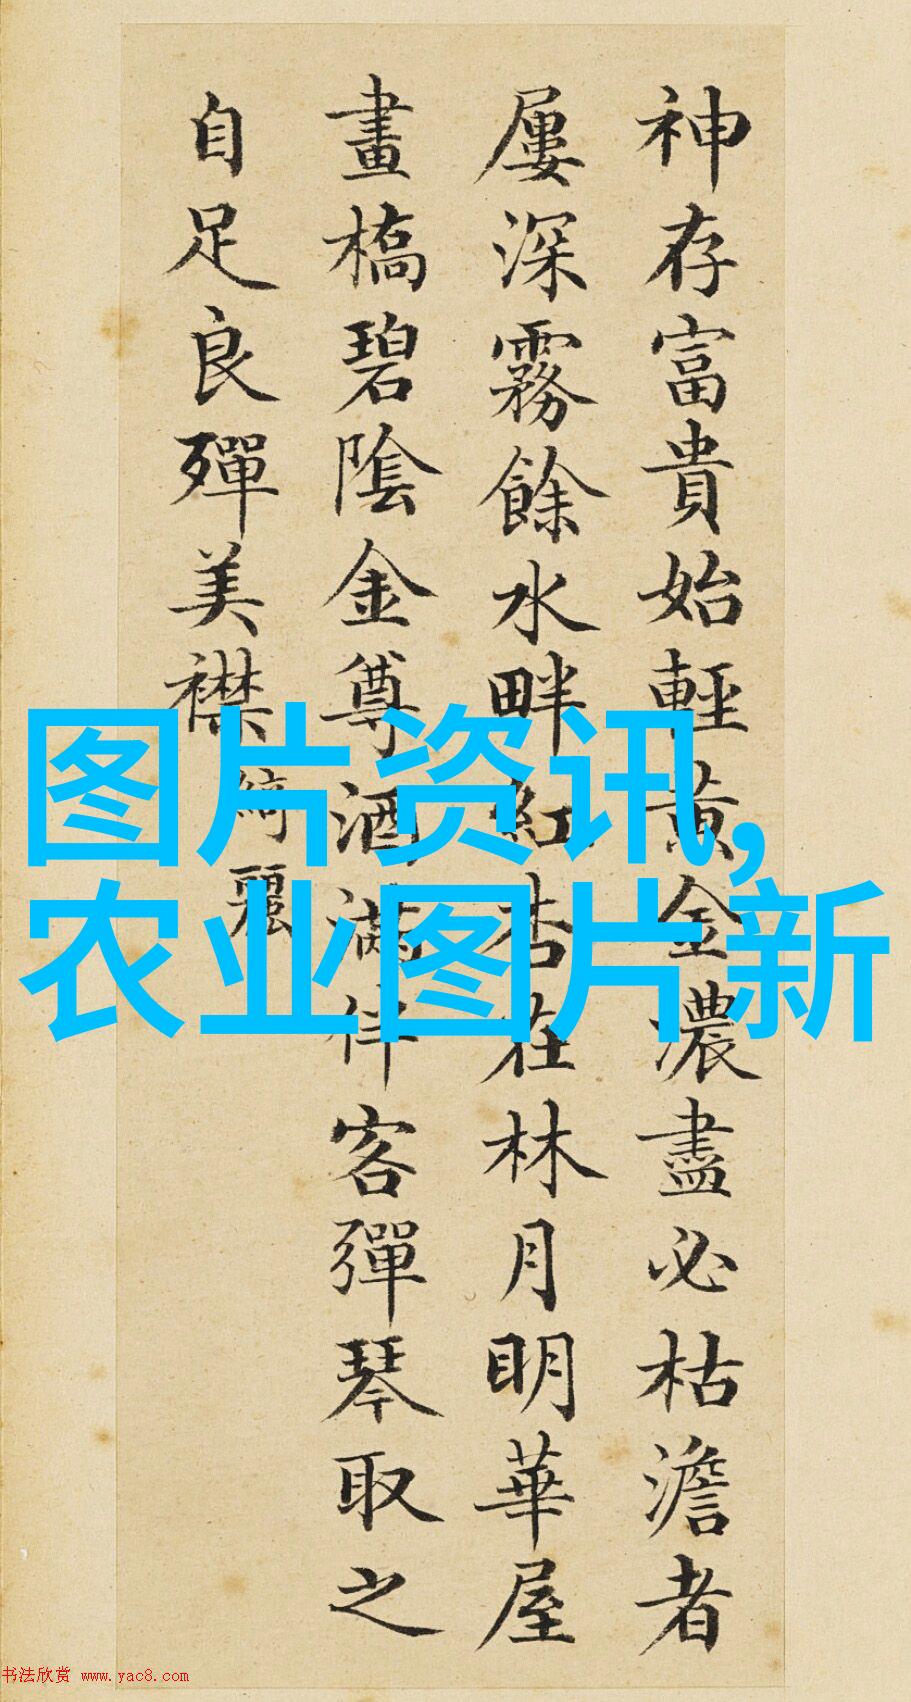 神存富貴始輕黄金濃盡必枯澹者
屢深霧餘水畔紅杏在林月明華屋
畫橋碧陰金尊酒滿伴客彈琴取之
自足良殫美襟綺麗
图片资讯,
农业图片新
书法欣赏 www.yac8.com